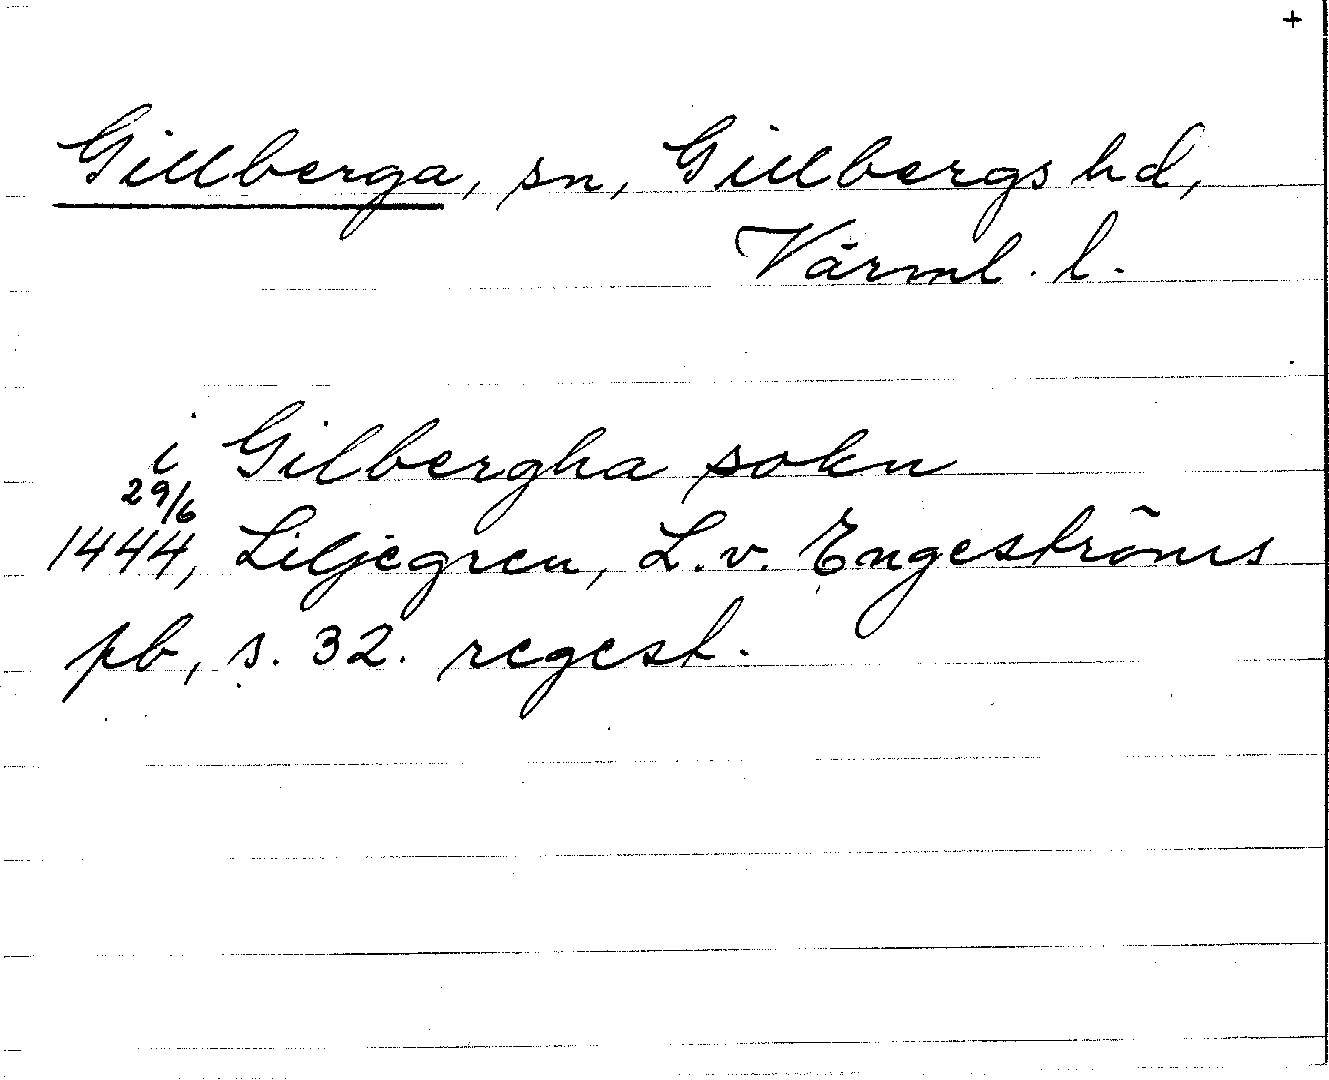 +
Gillberga, sn, Gillbergs hd,
Värml. l.
i Gilbergha sokn
29/6
1444, Liljegren, L. v. Engeströms
pb, s. 32. regest.